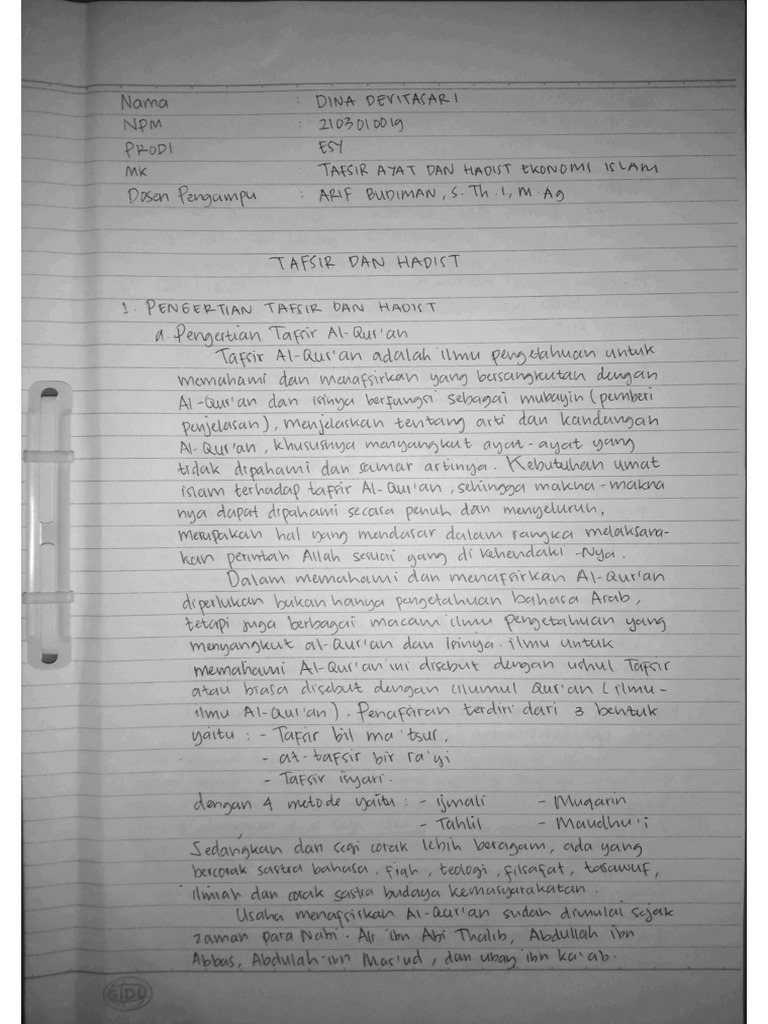 Nama : DINA DEVITASARI
NPM : 2103010019
PRODI : ESY
MK : TAFSIR AYAT DAN HADIST EKONOMI ISLAM
Dosen Pengampu : ARIF BUDIMAN, S.Th.I, M.Ag
TAFSIR DAN HADIST
1. PENGERTIAN TAFSIR DAN HADIST
a. Pengertian Tafsir Al-Qur'an
Tafsir Al-Qur'an adalah ilmu pengetahuan untuk
memahami dan menafsirkan yang bersangkutan dengan
Al-Qur'an dan isinya berfungsi sebagai mubayin (pemberi
penjelasan), menjelaskan tentang arti dan kandungan
Al-Qur'an, khususnya menyangkut ayat-ayat yang
tidak dipahami dan samar artinya. Kebutuhan umat
islam terhadap tafsir Al-Qur'an, sehingga makna-makna
nya dapat dipahami secara penuh dan menyeluruh,
merupakan hal yang mendasar dalam rangka melaksana-
kan perintah Allah sesuai yang di kehendaki -Nya.
Dalam memahami dan menafsirkan Al-Qur'an
diperlukan bukan hanya pengetahuan bahasa Arab,
tetapi juga berbagai macam ilmu pengetahuan yang
menyangkut al-Qur'an dan Isinya. ilmu untuk
memahami Al-Qur'an ini disebut dengan ushul Tafsir
atau biasa disebut dengan Ulumul Qur'an (ilmu-
ilmu Al-Qur'an). Penafsiran terdiri dari 3 bentuk
yaitu : - Tafsir bil ma'tsur,
- at-tafsir bir ra'yi
- Tafsir isyari.
dengan 4 metode yaitu : - ijmali - Muqarin
- Tahlil - Maudhu'i
Sedangkan dari segi corak lebih beragam, ada yang
bercorak sastra bahasa, fiqh, teologi, filsafat, tasawuf,
ilmiah dan corak sastra budaya kemasyarakatan.
Usaha menafsirkan Al-Qur'an sudah dimulai sejak
zaman para Nabi. Ali ibn Abi Thalib, Abdullah ibn
Abbas, Abdullah ibn Mas'ud, dan ubay ibn ka'ab.
SIDU